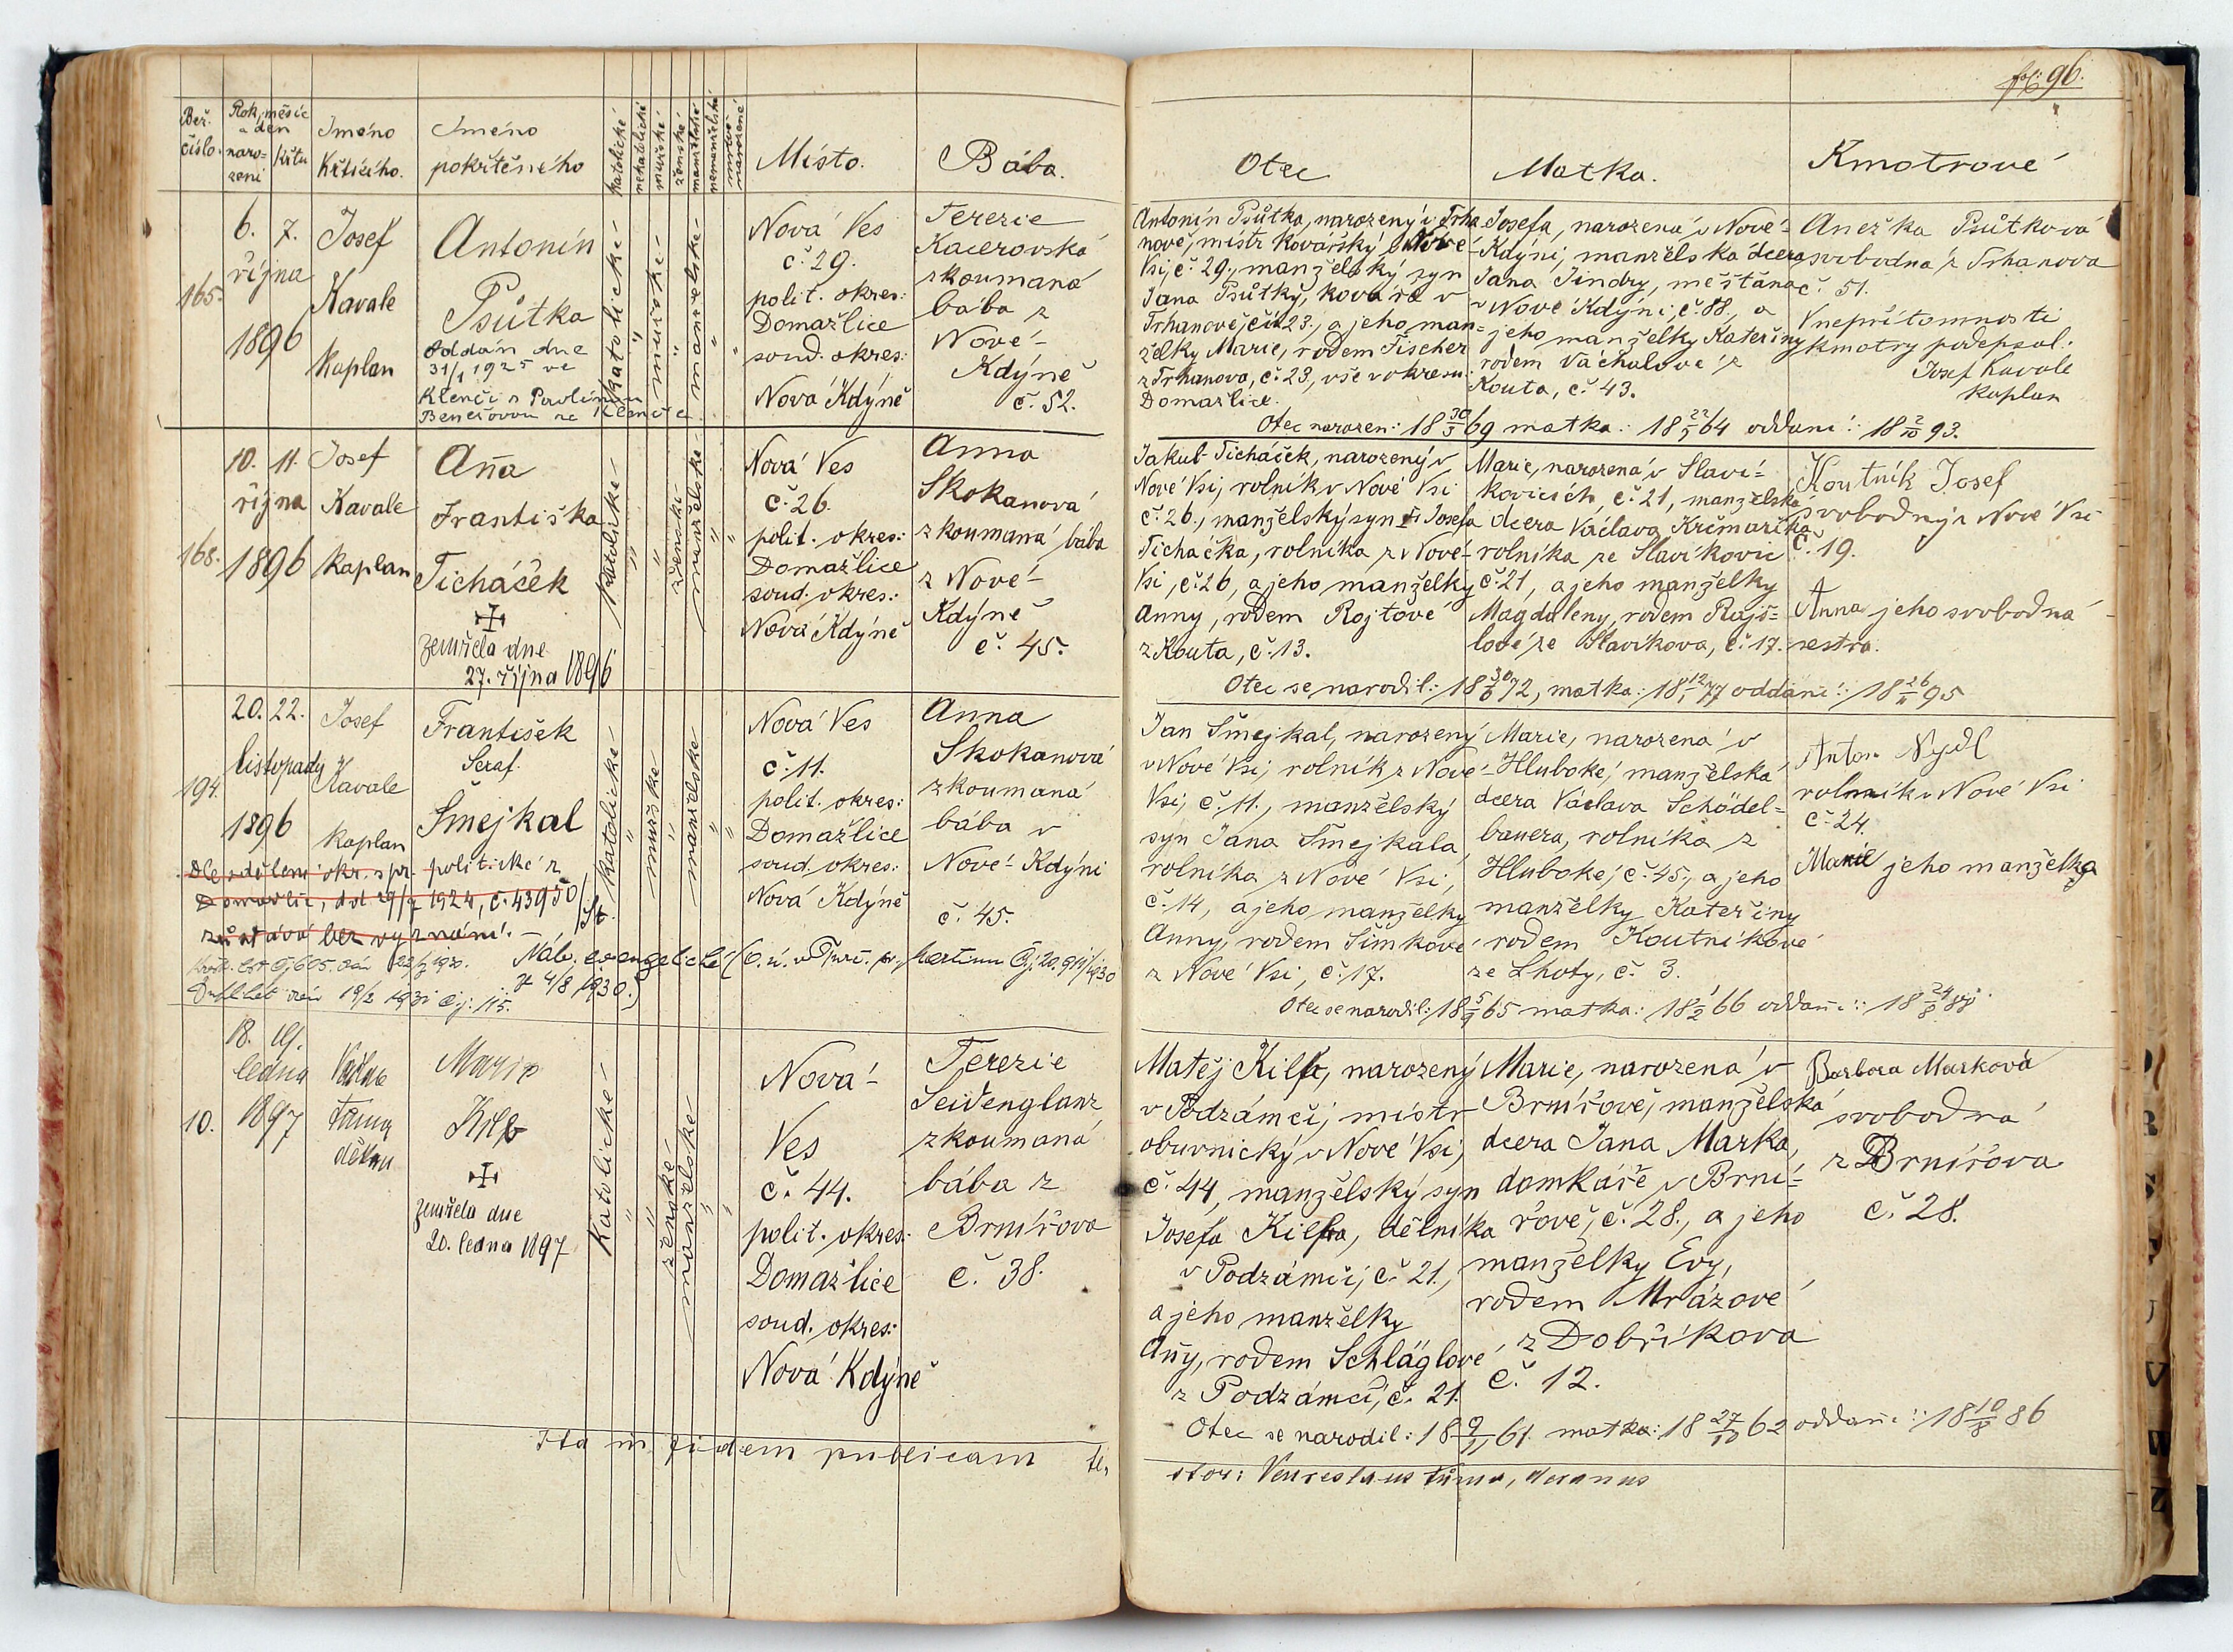 fol: 96.
Beř. číslo.
Rok, měsíc a den
naro=zení
křtu
Jméno Křtícího.
Jméno pokřtěného
katolické
nekatolické
mužské
ženské
manželské
nemanželské
mrtvě narozené
Místo.
Bába.
Otec
Matka.
Kmotrové
165.
6. 7.
října
1896
Josef
Kavale
kaplan
Antonín
Psůtka
Oddán dne
31/1 1925 ve
Klenčí s Pavlínou
Benešovou ze Klenče
katolické
mužské
manželské
Nová Ves
č. 29.
polit. okres:
Domažlice
soud. okres:
Nová Kdýně
Terezie
Kacerovská
zkoumaná
bába z
Nové-
Kdýně
č. 52.
Antonín Psůtka, narozený v Trha
nově, mistr kovářský v Nové
Vsi, č. 29., manželský syn
Jana Psůtky, kováře v
Trhanově, čís 23., a jeho man=
želky Marie, rodem Fischer
z Trhanova, č. 23., vše v okresu
Domažlice.
Josefa, narozená v Nové-
Kdýni, manželská dcera
Jana Jindry, měšťana
v Nové Kdýni, č. 88., a
jeho manželky Kateřiny
rodem Váchalové z
Kouta, č. 43.
Anežka Psůtková
svobodná z Trhanova
č. 51.
V nepřítomnosti
kmotry podepsal:
Josef Kavale
kaplan
Otec narozen: 18 30/5 69 matka: 18 22/5 64 oddaní: 18 2/10 93.
168.
10. 11.
října
1896
Josef
Kavale
kaplan
Aňa
Františka
Ticháček
zemřela dne
27. října 1896
katolické
ženské
manželské
Nová Ves
č. 26.
polit. okres:
Domažlice
soud. okres:
Nová Kdýně
Anna
Skokanová
zkoumaná bába
z Nové-
Kdýně
č. 45.
Jakub Ticháček, narozený v
Nové Vsi, rolník v Nové Vsi
č. 26., manželský syn Josefa
Ticháčka, rolníka z Nové-
Vsi, č. 26, a jeho manželky
Anny, rodem Rojtové
z Kouta, č. 13.
Marie, narozená v Slaví-
kovicích, č. 21, manželská
dcera Václava Krčmaříka,
rolníka ze Slavíkovic
č. 21, a jeho manželky
Magdaleny, rodem Rajš-
lové ze Slavíkova, č. 17.
Koutník Josef
svobodný z Nové Vsi
č. 19.
Anna jeho svobodná
sestra.
Otec se narodil: 18 30/6 72, matka: 18 12/1 77 oddaní: 18 26/11 95
194.
20. 22.
listopadu
1896
Josef
Kavale
kaplan
František
Seraf.
Šmejkal
Dle sdělení okr. spr. politické z
Domažlic, dat 29/7 1924, č. 43950/
zůstává bez vyznání. –
Náb. evangelické
z 4/8 1930.)
katolické
mužské
manželské
Nová Ves
č. 11.
polit. okres:
Domažlice
soud. okres:
Nová Kdýně
Anna
Skokanová
zkoumaná
bába v
Nové-Kdýni
č. 45.
Jan Šmejkal, narozený
v Nové Vsi, rolník z Nové-
Vsi, č. 11., manželský
syn Jana Šmejkala,
rolníka z Nové Vsi,
č. 14, a jeho manželky
Anny, rodem Šimkové
z Nové Vsi, č. 17.
Marie, narozená v
Hluboké, manželská
dcera Václava Schödel=
bauera, rolníka z
Hluboké, č. 45., a jeho
manželky Kateřiny
rodem Koutníkové
ze Lhoty, č. 3.
Anton Nejdl
rolník v Nové Vsi
č. 24.
Marie jeho manželka
Otec se narodil: 18 5/9 65 matka: 18 1/2 66 oddaní: 18 24/8 88
10.
18. 19.
ledna
1897
Václav
Tůma
děkan
Marie
Kilb
zemřela dne
20. ledna 1897
Katolické
ženské
manželské
Nová-
Ves
č. 44.
polit. okres:
Domažlice
soud. okres:
Nová Kdýně
Terezie
Seidenglanz
zkoumaná
bába z
Brnířova
č. 38.
Matěj Kilb, narozený
v Podzámčí, mistr
obuvnický v Nové Vsi,
č. 44, manželský syn
Josefa Kilba, dělníka
v Podzámčí, č. 21.,
a jeho manželky
Aňy, rodem Schláglové
z Podzámčí, č. 21.
Marie, narozená v
Brnířově, manželská
dcera Jana Marka,
domkáře v Brní-
řově, č. 28., a jeho
manželky Evy,
rodem Mrázové
z Dobříkova
č. 12.
Barbora Marková
svobodná
z Brnířova
č. 28.
Otec se narodil: 18 9/11 61. matka: 18 27/10 62 oddaní: 18 10/8 86
Ita in fidem publicam te,
stor: Venceslaus Tůma, decanus